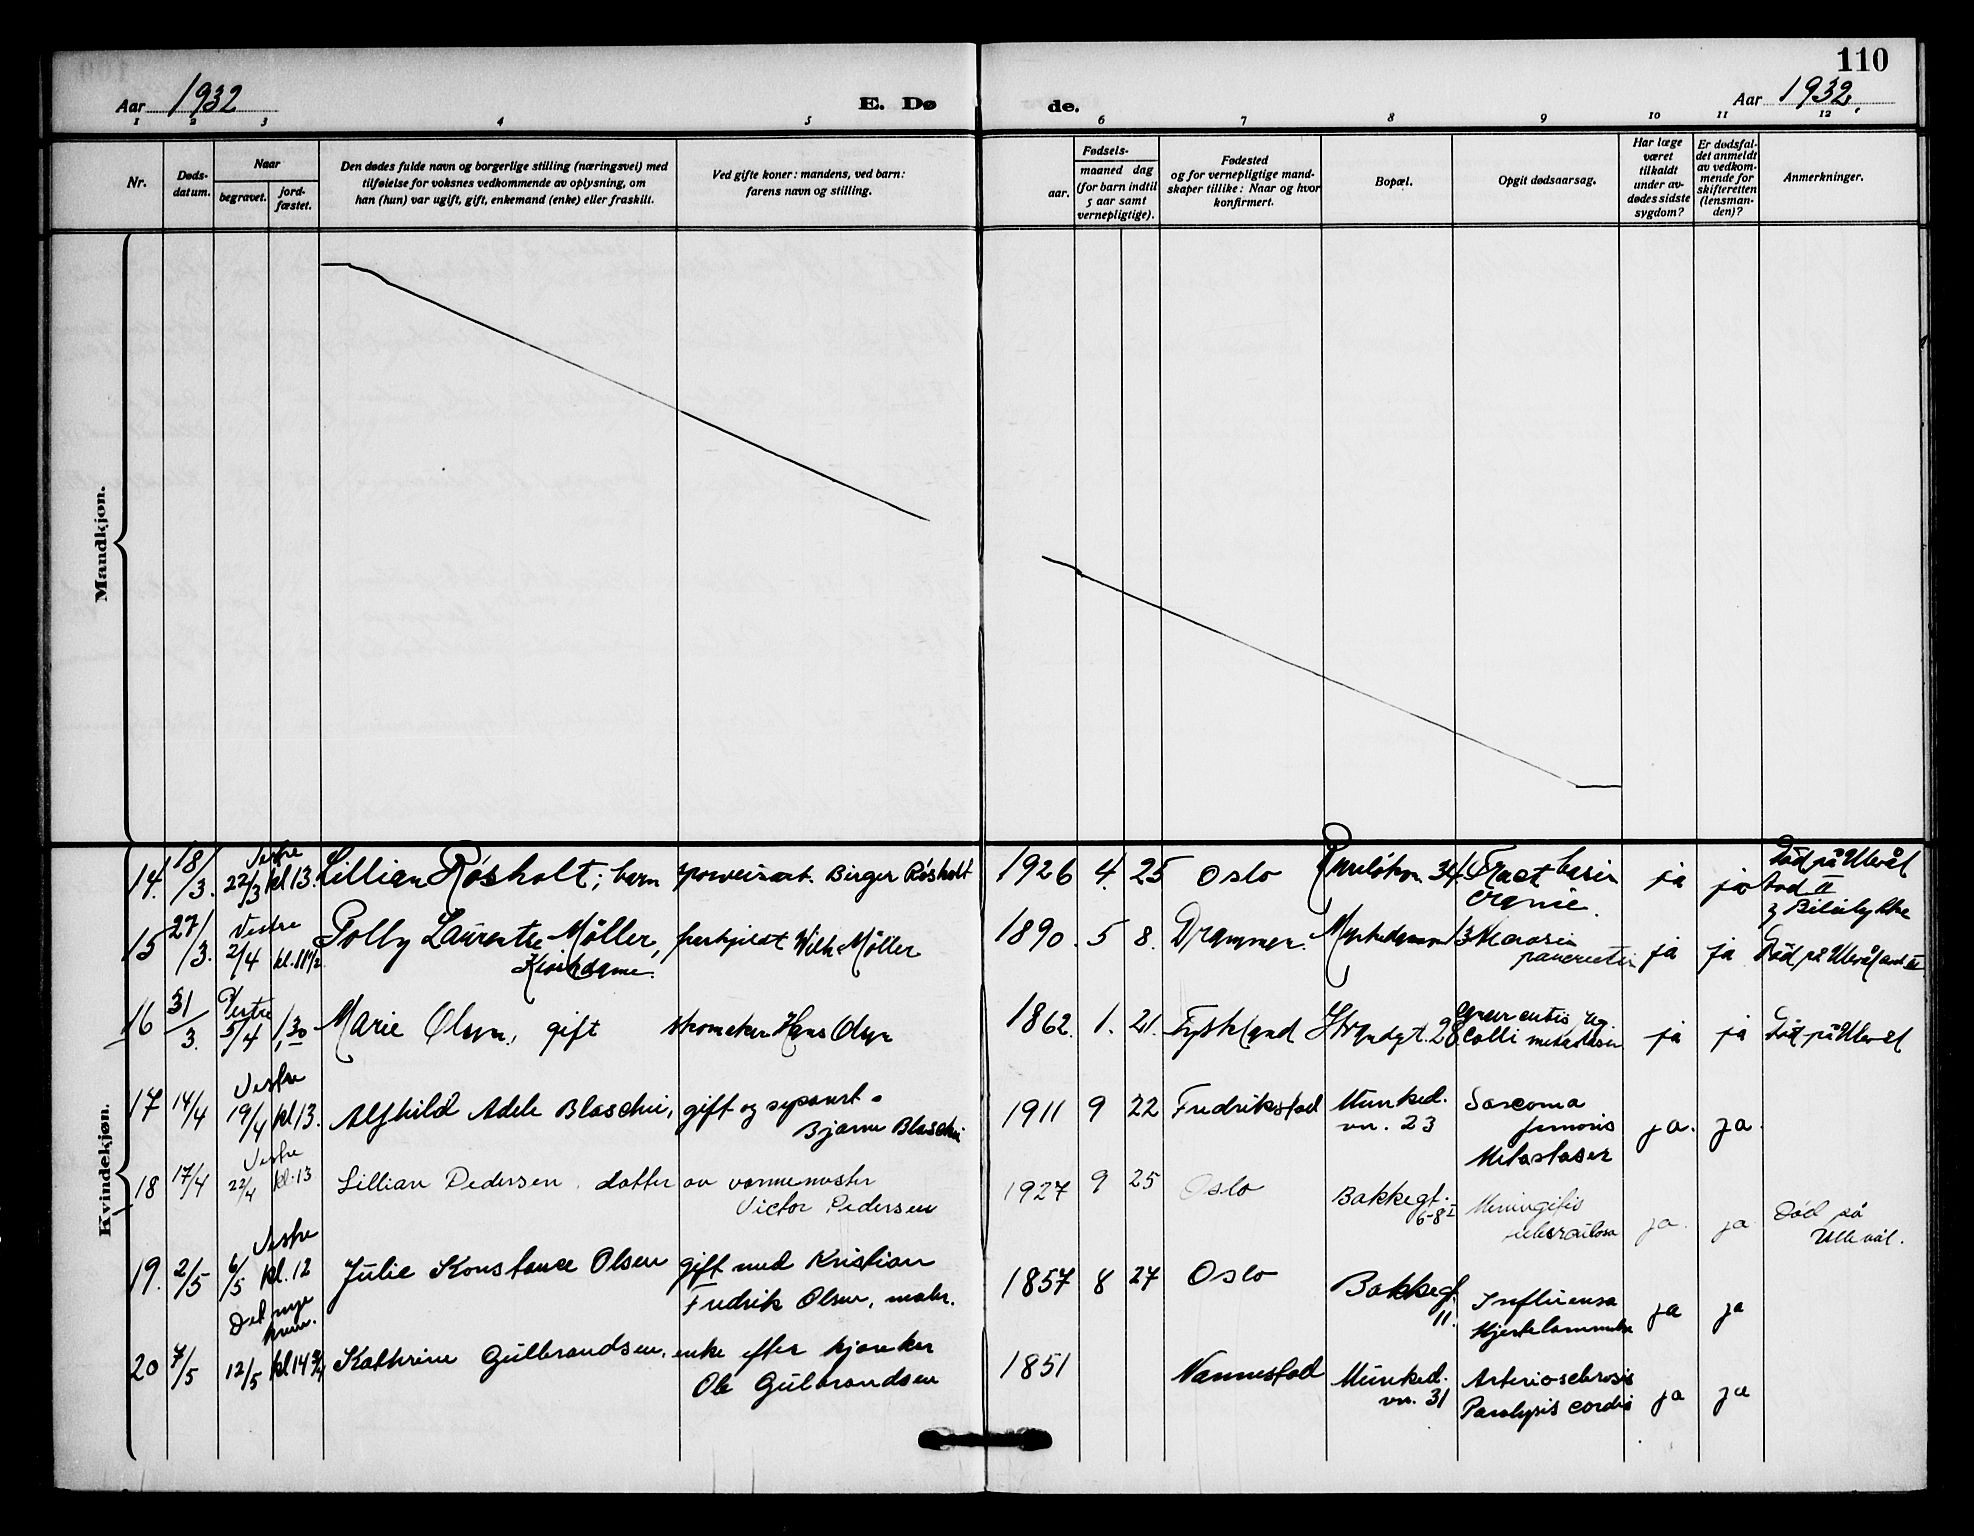 110
Aar 1932 E. Dø de. Aar 1932.
1 2 3 4 5 6 7 8 9 10 11 12
Nr.
Døds-
datum.
Naar
begravet.
jord-
fæstet.
Den dødes fulde navn og borgerlige stilling (næringsvei) med
tilføielse for voksnes vedkommende av oplysning, om
han (hun) var ugift, gift, enkemand (enke) eller fraskilt.
Ved gifte koner: mandens, ved barn:
farens navn og stilling.
Fødsels-
aar.
maaned dag
(for barn indtil
5 aar samt
vernepligtige).
Fødested
og for vernepligtige mand-
skaper tillike: Naar og hvor
konfirmert.
Bopæl.
Opgit dødsaarsag.
Har læge
været
tilkaldt
under av-
dødes sidste
sygdom?
Er dødsfal-
det anmeldt
av vedkom-
mende for
skifteretten
(lensman-
den)?
Anmerkninger.
Mandkjøn.
Kvindekjøn.
14. 18/3. Vestre 22/3 kl 13. Lillian Røsholt; barn Birger Røsholt 1926 4. 25 Oslo 34. Fract. basis cranie. ja ja Död på Ullevål avd II
15 27/3. Vestre 2/4 kl. 11½ Polly Laurentze Møller, Wilh. Møller 1890. 5 8. Drammen. 13 ja ja Död på Ullevål avd III
16 31/3. Vestre 5/4 1,30 Marie Olsen, gift skomaker Hans Olsen 1862. 1. 21. Tyskland Strandgt. 28 colli metastaser ja ja Död på Ullevål
17 14/4 Vestre 19/4 kl 13. Alfhild Adele Blaschii, gift og separert.
Bjarne Blaschii 1911 9 22 Fredrikstad Munked.
vn. 23 Sarcoma
femoris
Metastaser ja. ja.
18 17/4 Vestre 22/4 kl. 13 Lillian Pedersen, datter av varmemester
Victor Pedersen 1927 9 25 Oslo Bakkegt.
6-8 I Meningitis
tuberculosa ja. ja Död på
Ullevål.
19. 2/5 Vestre 6/5 kl. 12 Julie Konstance Olsen gift med Kristian
Fredrik Olsen, maler. 1857 8 27 Oslo Bakkegt.
11. Influensa
Hjertelammelse ja ja
20 7/5 Det nye krem. 12/5 kl 14 Kathrine Gulbrandsen, enke efter
Ole Gulbrandsen 1851 Nannestad Munked.
vn. 31 Arteriosclerosis
Paralysis cordis ja ja